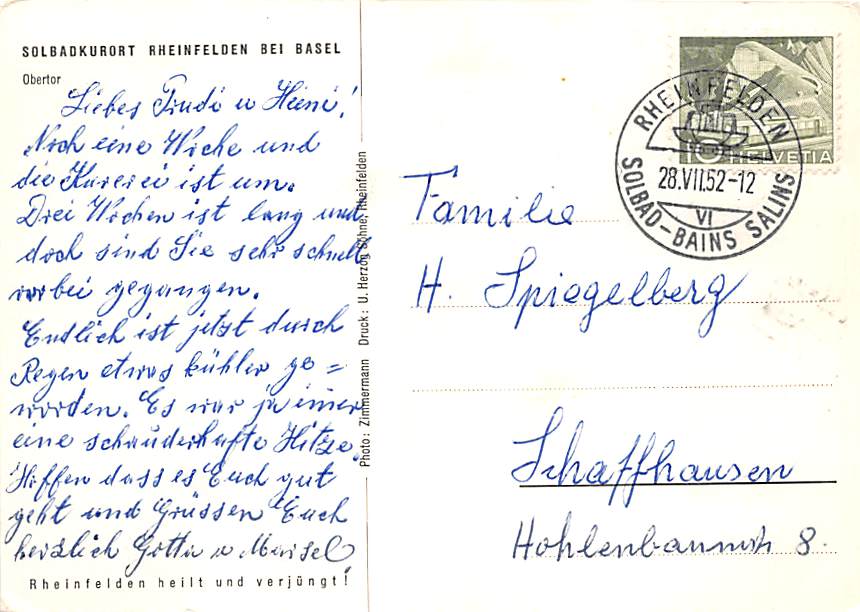 SOLBADKURORT RHEINFELDEN BEI BASEL
Obertor
Liebes Trudi u Heini!
Noch eine Woche und
die Kurerei ist um.
Drei Wochen ist lang und
doch sind Sie sehr schnell
vorbei gegangen.
Endlich ist jetzt durch
Regen etwas kühler ge=
worden. Es war ja immer
eine schauderhafte Hitze.
Hoffen dass es Euch gut
geht und Grüssen Euch
herzlich Gotta u
Rheinfelden heilt und verjüngt!
Photo: Zimmermann Druck: U. Herzog Söhne, Rheinfelden
RHEINFELDEN
28.VII.52-12
VI
SOLBAD-BAINS SALINS
10 HELVETIA
Familie
H. Spiegelberg
Schaffhausen
8.